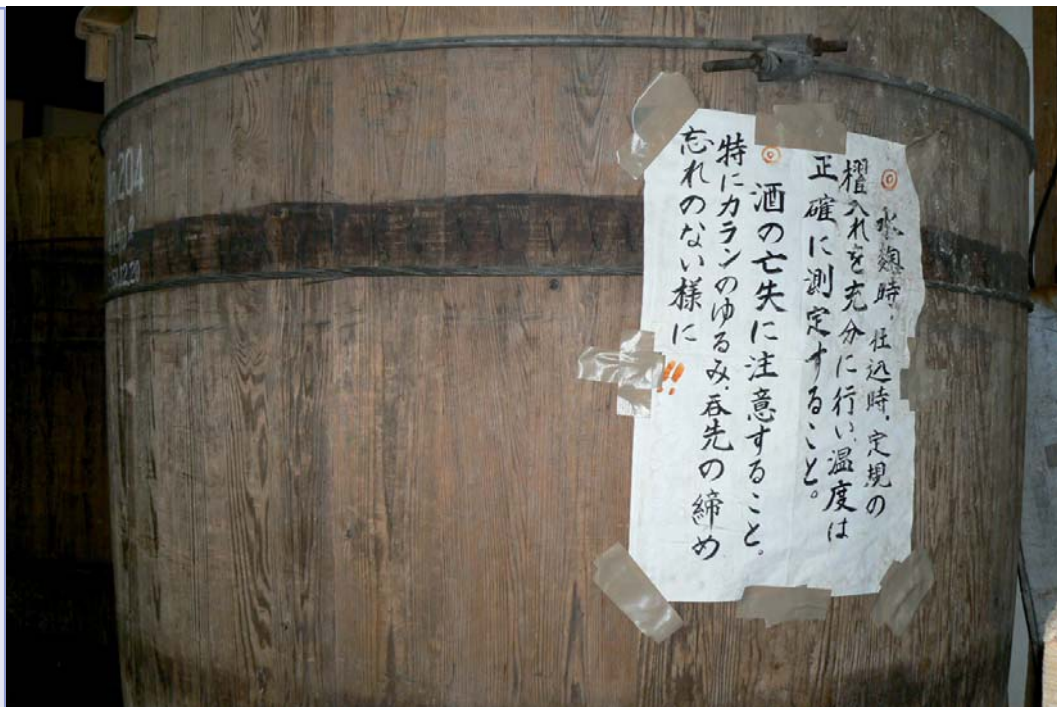 ◎ 水麹時、仕込時、定規の
櫂入れを充分に行い、温度は
正確に測定すること。
◎ 酒の亡失に注意すること。
特にカランのゆるみ、呑先の締め
忘れのない様に!!
204